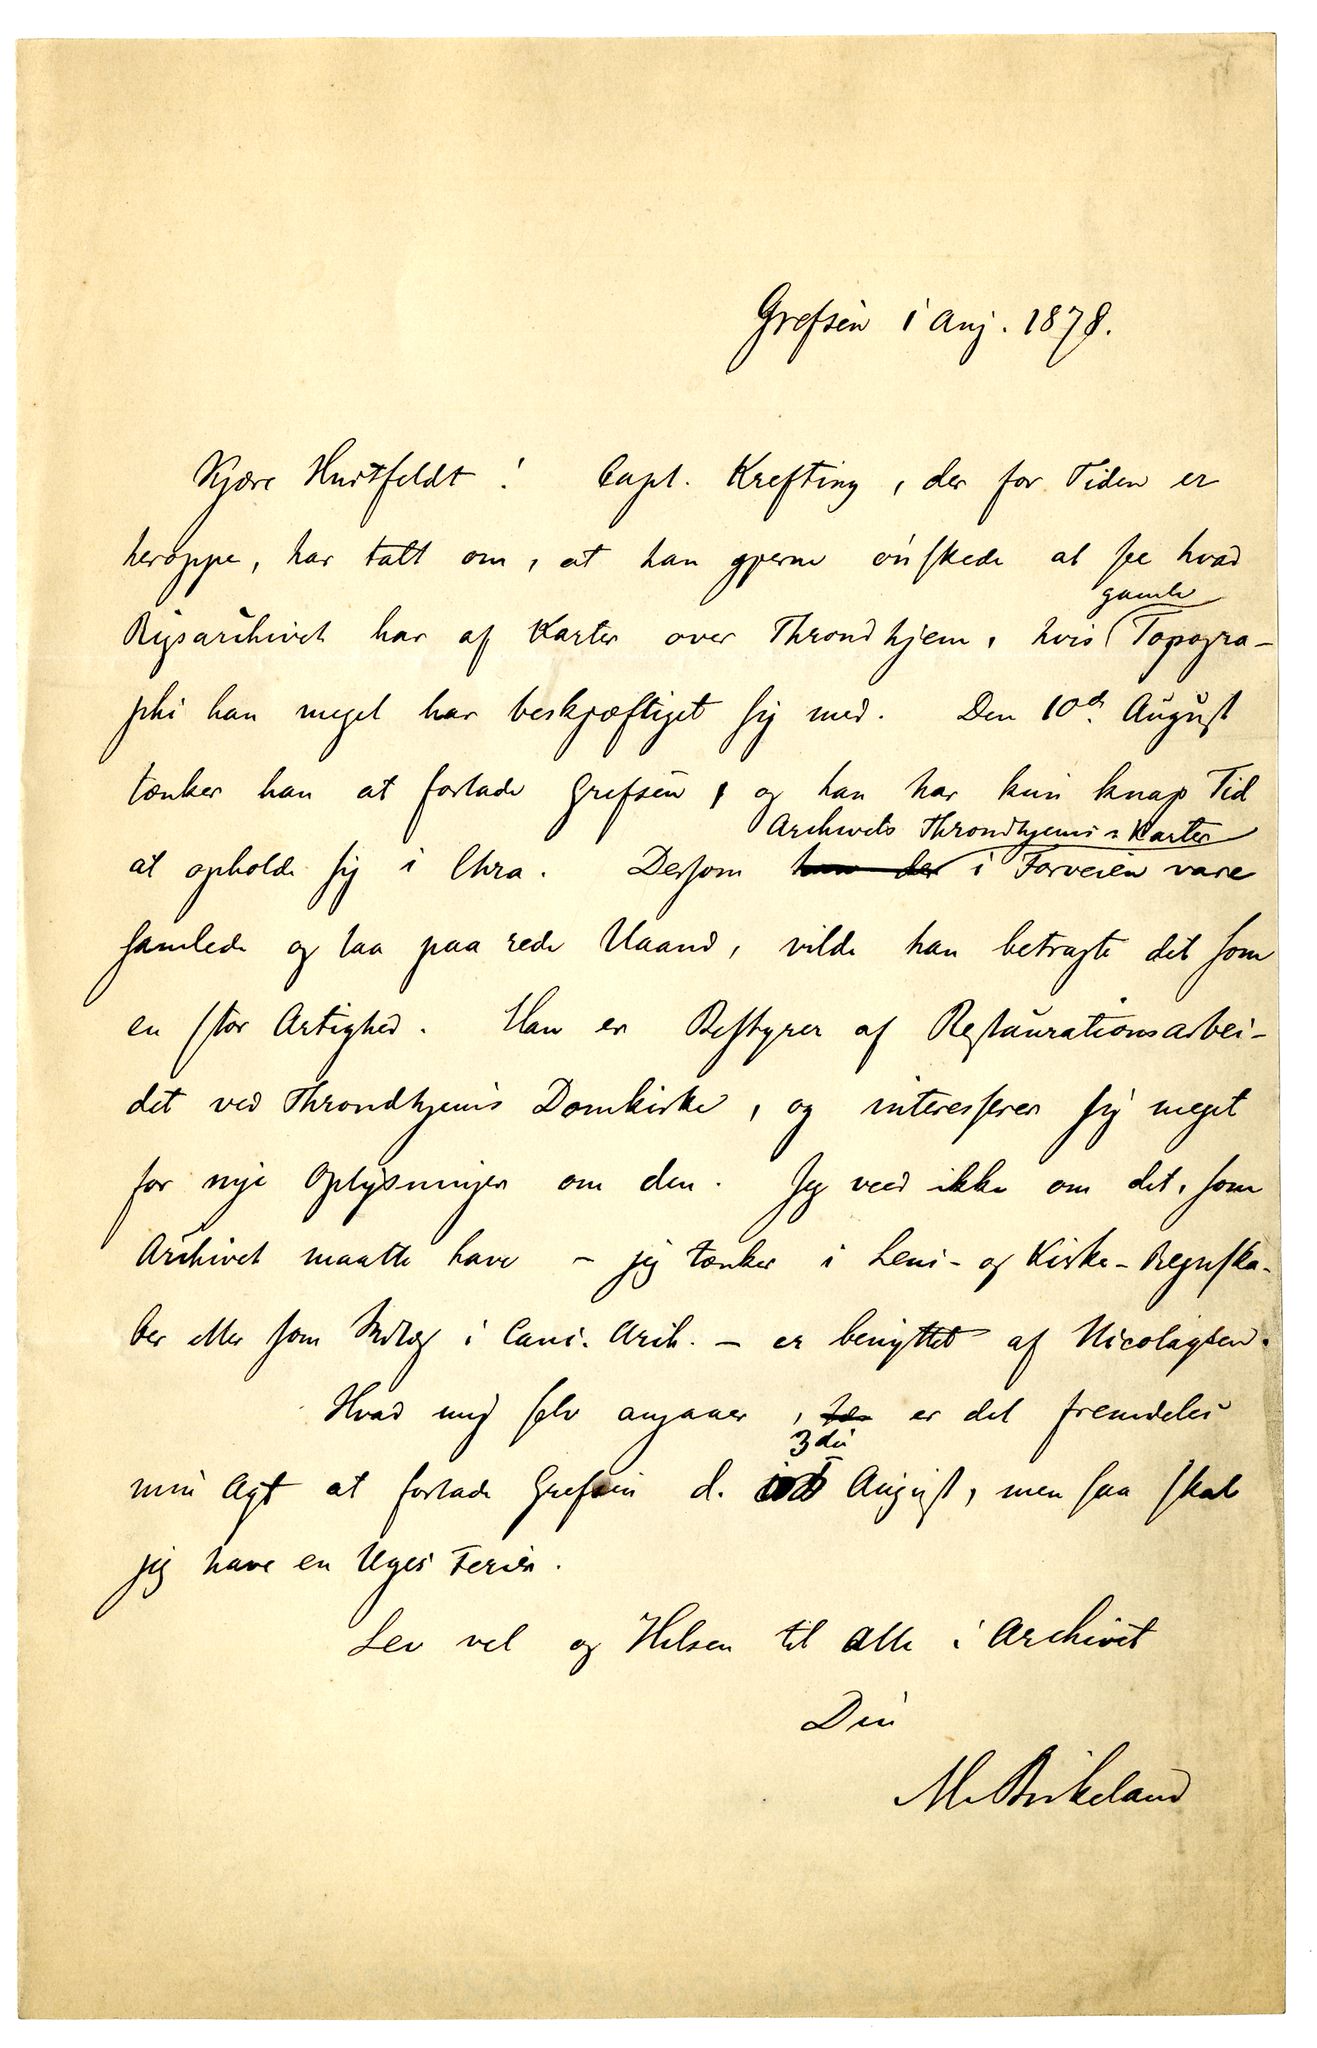 Grefsen i Aug. 1878.
Kjære Huitfeldt! Capt. Krefting, der for Tiden er
heroppe, har talt om, at han gjerne ønskede at see hvad
gamle
Rigsarchivet har af Karter over Throndhjem, hvis Topogra-
phi han meget har beskjæftiget sig med. Den 10de August
tænker han at forlade Grefsen, og han har kun knap Tid
Archivets Throndhjems Karter
at opholde sig i Chra. Dersom han der i Forveien vare
samlede og laa paa rede Haand, vilde han betragte det som
en stor Artighed. Han er Bestyrer af Restaurationsarbei-
det ved Throndhjems Domkirke, og interesserer sig meget
for nye Oplysninger om den. Jeg veed ikke om det, som
Archivet maatte have – jeg tænker i Lens- og Kirke-Regnska-
ber eller som Indlæg i Canc. Arch. – er benyttet af Nicolaysen.
Hvad mig selv angaaer, er det fremdeles
3die
min Agt at forlade Grefsen d. August, men saa skal
jeg have en Uges Ferier.
Lev vel og Hilsen til alle i Archivet
Din
M. Birkeland